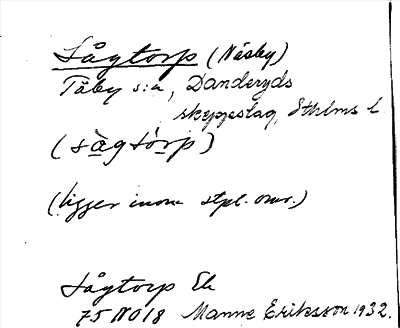 Sågtorp (Näsby)
Täby s:n, Danderyds
skeppslag, Sthlms l.
(sàgtórp)
(ligger inom stpl. omr.)
Sågtorp Ek
75 NO18 Manne Eriksson 1932.